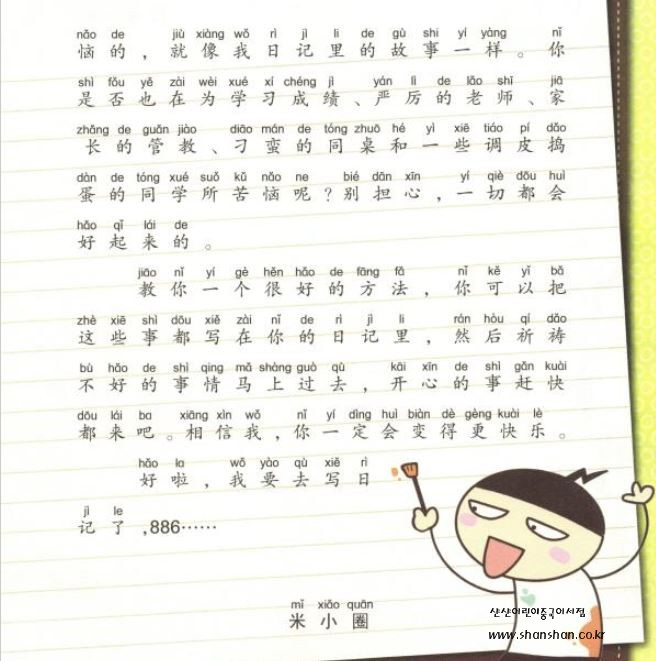 nǎo de jiù xiàng wǒ rì jì li de gù shi yí yàng nǐ
恼的，就像我日记里的故事一样。你
shì fǒu yě zài wèi xué xí chéng jì yán lì de lǎo shī jiā
是否也在为学习成绩、严厉的老师、家
zhǎng de guǎn jiào diāo mán de tóng zhuō hé yì xiē tiáo pí dǎo
长的管教、刁蛮的同桌和一些调皮捣
dàn de tóng xué suǒ kǔ nǎo ne bié dān xīn yí qiè dōu huì
蛋的同学所苦恼呢？别担心，一切都会
hǎo qǐ lái de
好起来的。
jiāo nǐ yí gè hěn hǎo de fāng fǎ nǐ kě yǐ bǎ
教你一个很好的方法，你可以把
zhè xiē shì dōu xiě zài nǐ de rì jì li rán hòu qí dǎo
这些事都写在你的日记里，然后祈祷
bù hǎo de shì qing mǎ shàng guò qù kāi xīn de shì gǎn kuài
不好的事情马上过去，开心的事赶快
dōu lái ba xiāng xìn wǒ nǐ yí dìng huì biàn dè gèng kuài lè
都来吧。相信我，你一定会变得更快乐。
hǎo la wǒ yào qù xiě rì
好啦，我要去写日
jì le
记了，886……
mǐ xiǎo quān
米小圈
산산어린이중국어서점
www.shanshan.co.kr